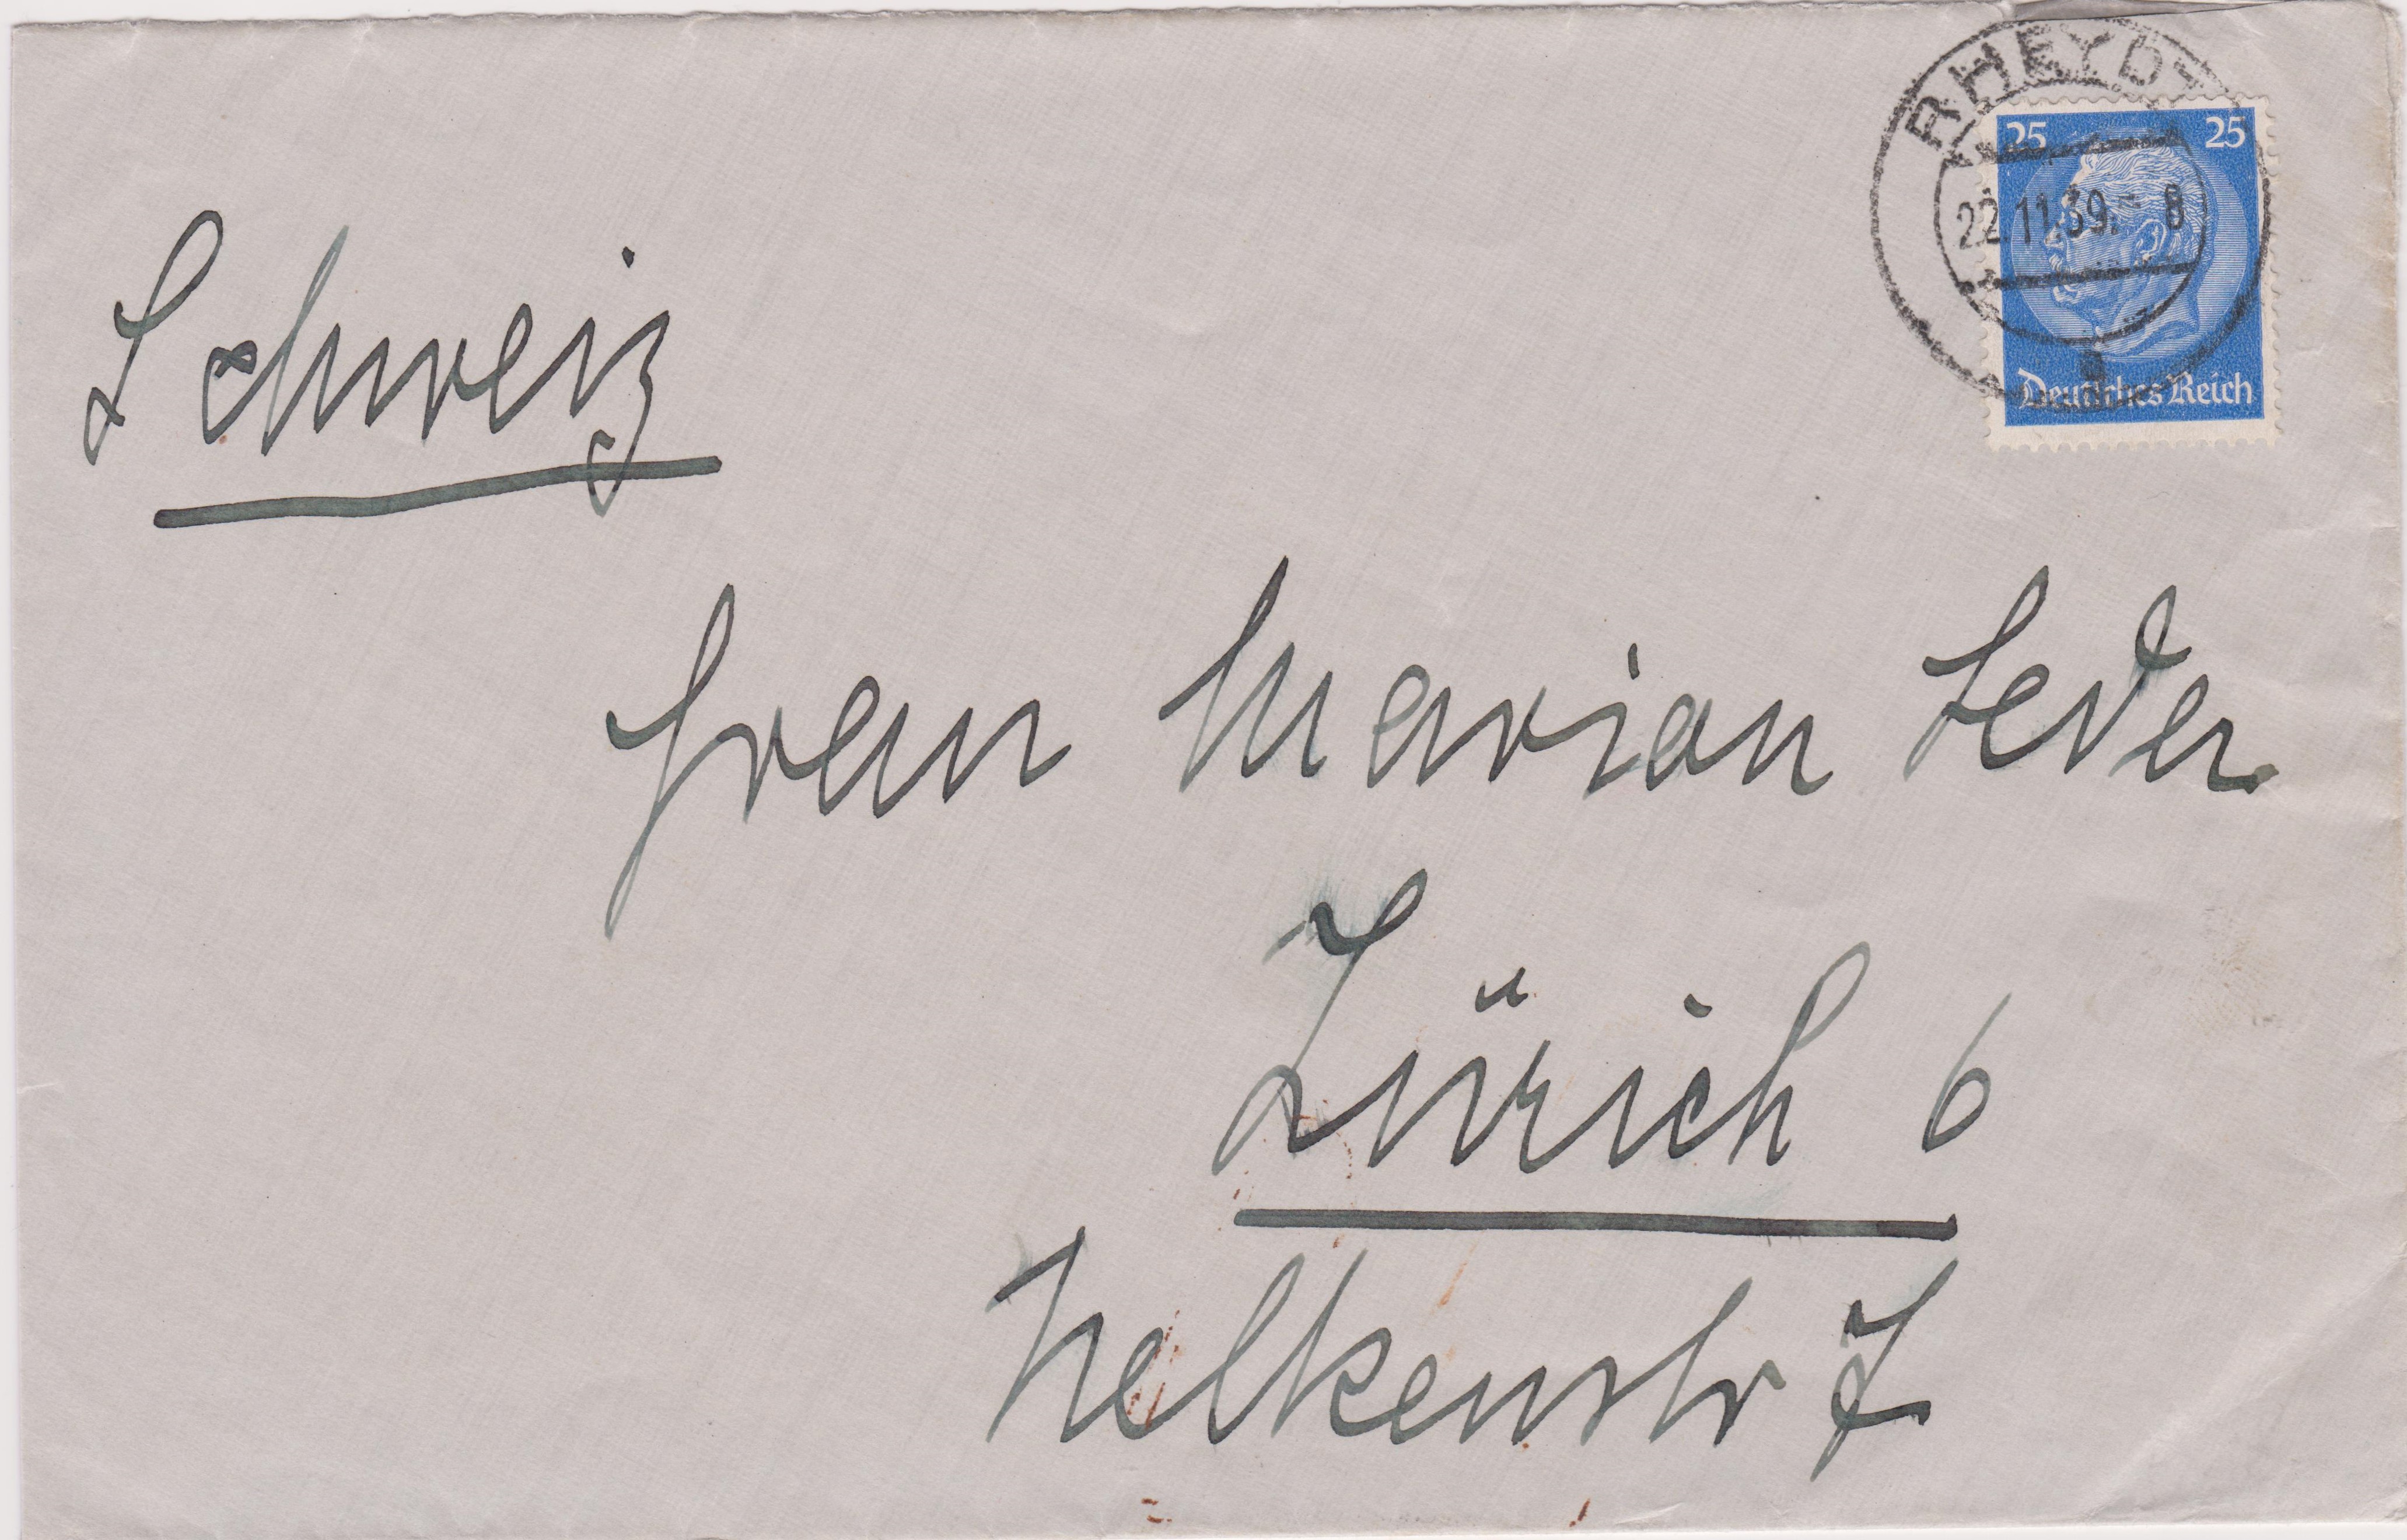 RHEYDT
25 25
22.11.39.- 8
Deutsches Reich
Schweiz
Frau Marian Leder
Zürich 6
Nelkenstr